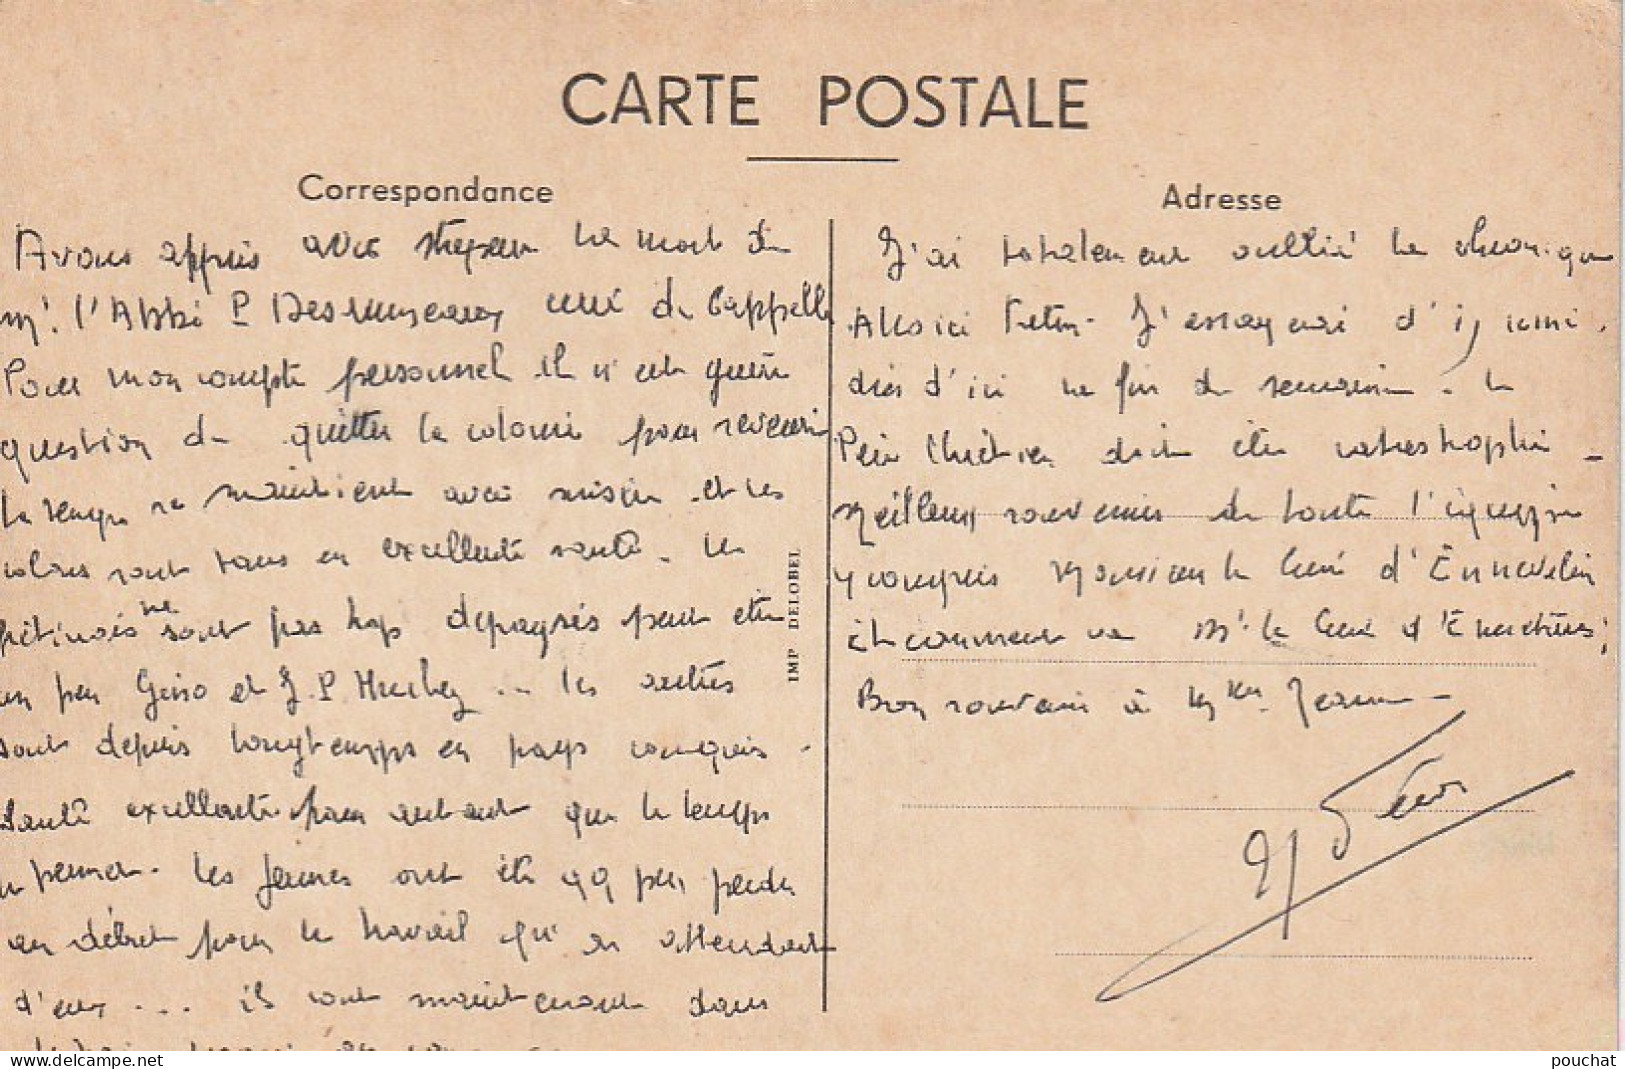 CARTE POSTALE
Correspondance
Avons appris avec stupeur la mort de
Mr. l'Abbé P. Desmuseaux curé de Cappelle
Pour mon compte personnel il n'est guère
question de quitter la colonie pour revenir
Le temps se maintient avec et les
colons sont tous en excellente santé. Les
ne
sont pas trop depaysés peut etre
un peu et J.P. ... les autres
sont depuis longtemps en pays conquis.
Santé excellente pour autant que le temps
le permet. Les jeunes ont été qq peu perdu
au début pour le travail qu'on attendait
d'eux ... ils sont maintenant dans
IMP DELOBEL
Adresse
J'ai totalement oublié la chronique
J'essayerai d'y remé-
dier d'ici la fin de semaine. Le
Père Chrétien doit être catastrophé -
Meilleurs souvenirs de toute l'équipe
y compris Monsieur le Curé d'Ennevelin
Et comment va Mr le Curé d'
Bon souvenir à Melle Jeanne -
delcampe.net
pouchat